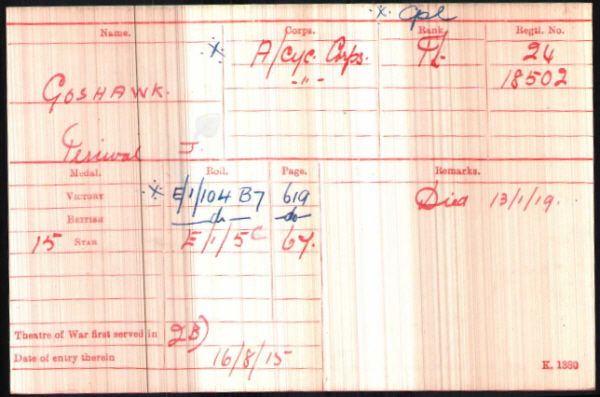 * Cpl
Name. Corps. Rank. Regtl. No.
* A/Cyc. Corps. Pt. 24
-"- 18502
GOSHAWK.
Percival J.
Medal. Roll. Page. Remarks.
VICTORY * E/1/104 B7 619 Died 13/1/19.
BRITISH —do— do
15 STAR E/1/5C 67.
Theatre of War first served in 2B)
Date of entry therein 16/8/15
K. 1380